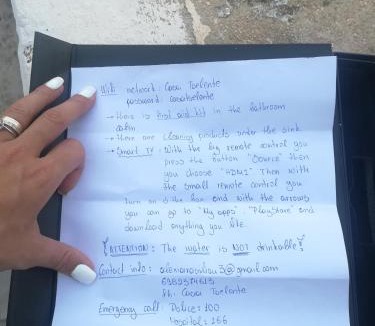 Wifi network: Casa Toelente
password: casatoelente
→ there is first aid kit in the bathroom
→ there are cleaning products under the sink
→ Smart TV: With the big remote control you
press the button "Source" then
you choose "HDMI". Then with
the small remote control you
turn on the box and with the arrows
you can go to "My apps", "PlayStore" and
download anything you like.
ATTENTION: The water is NOT drinkable!
Contact info: @gmail.com
FB: Casa Toelente
Emergency call: Police: 100
Hospital: 166